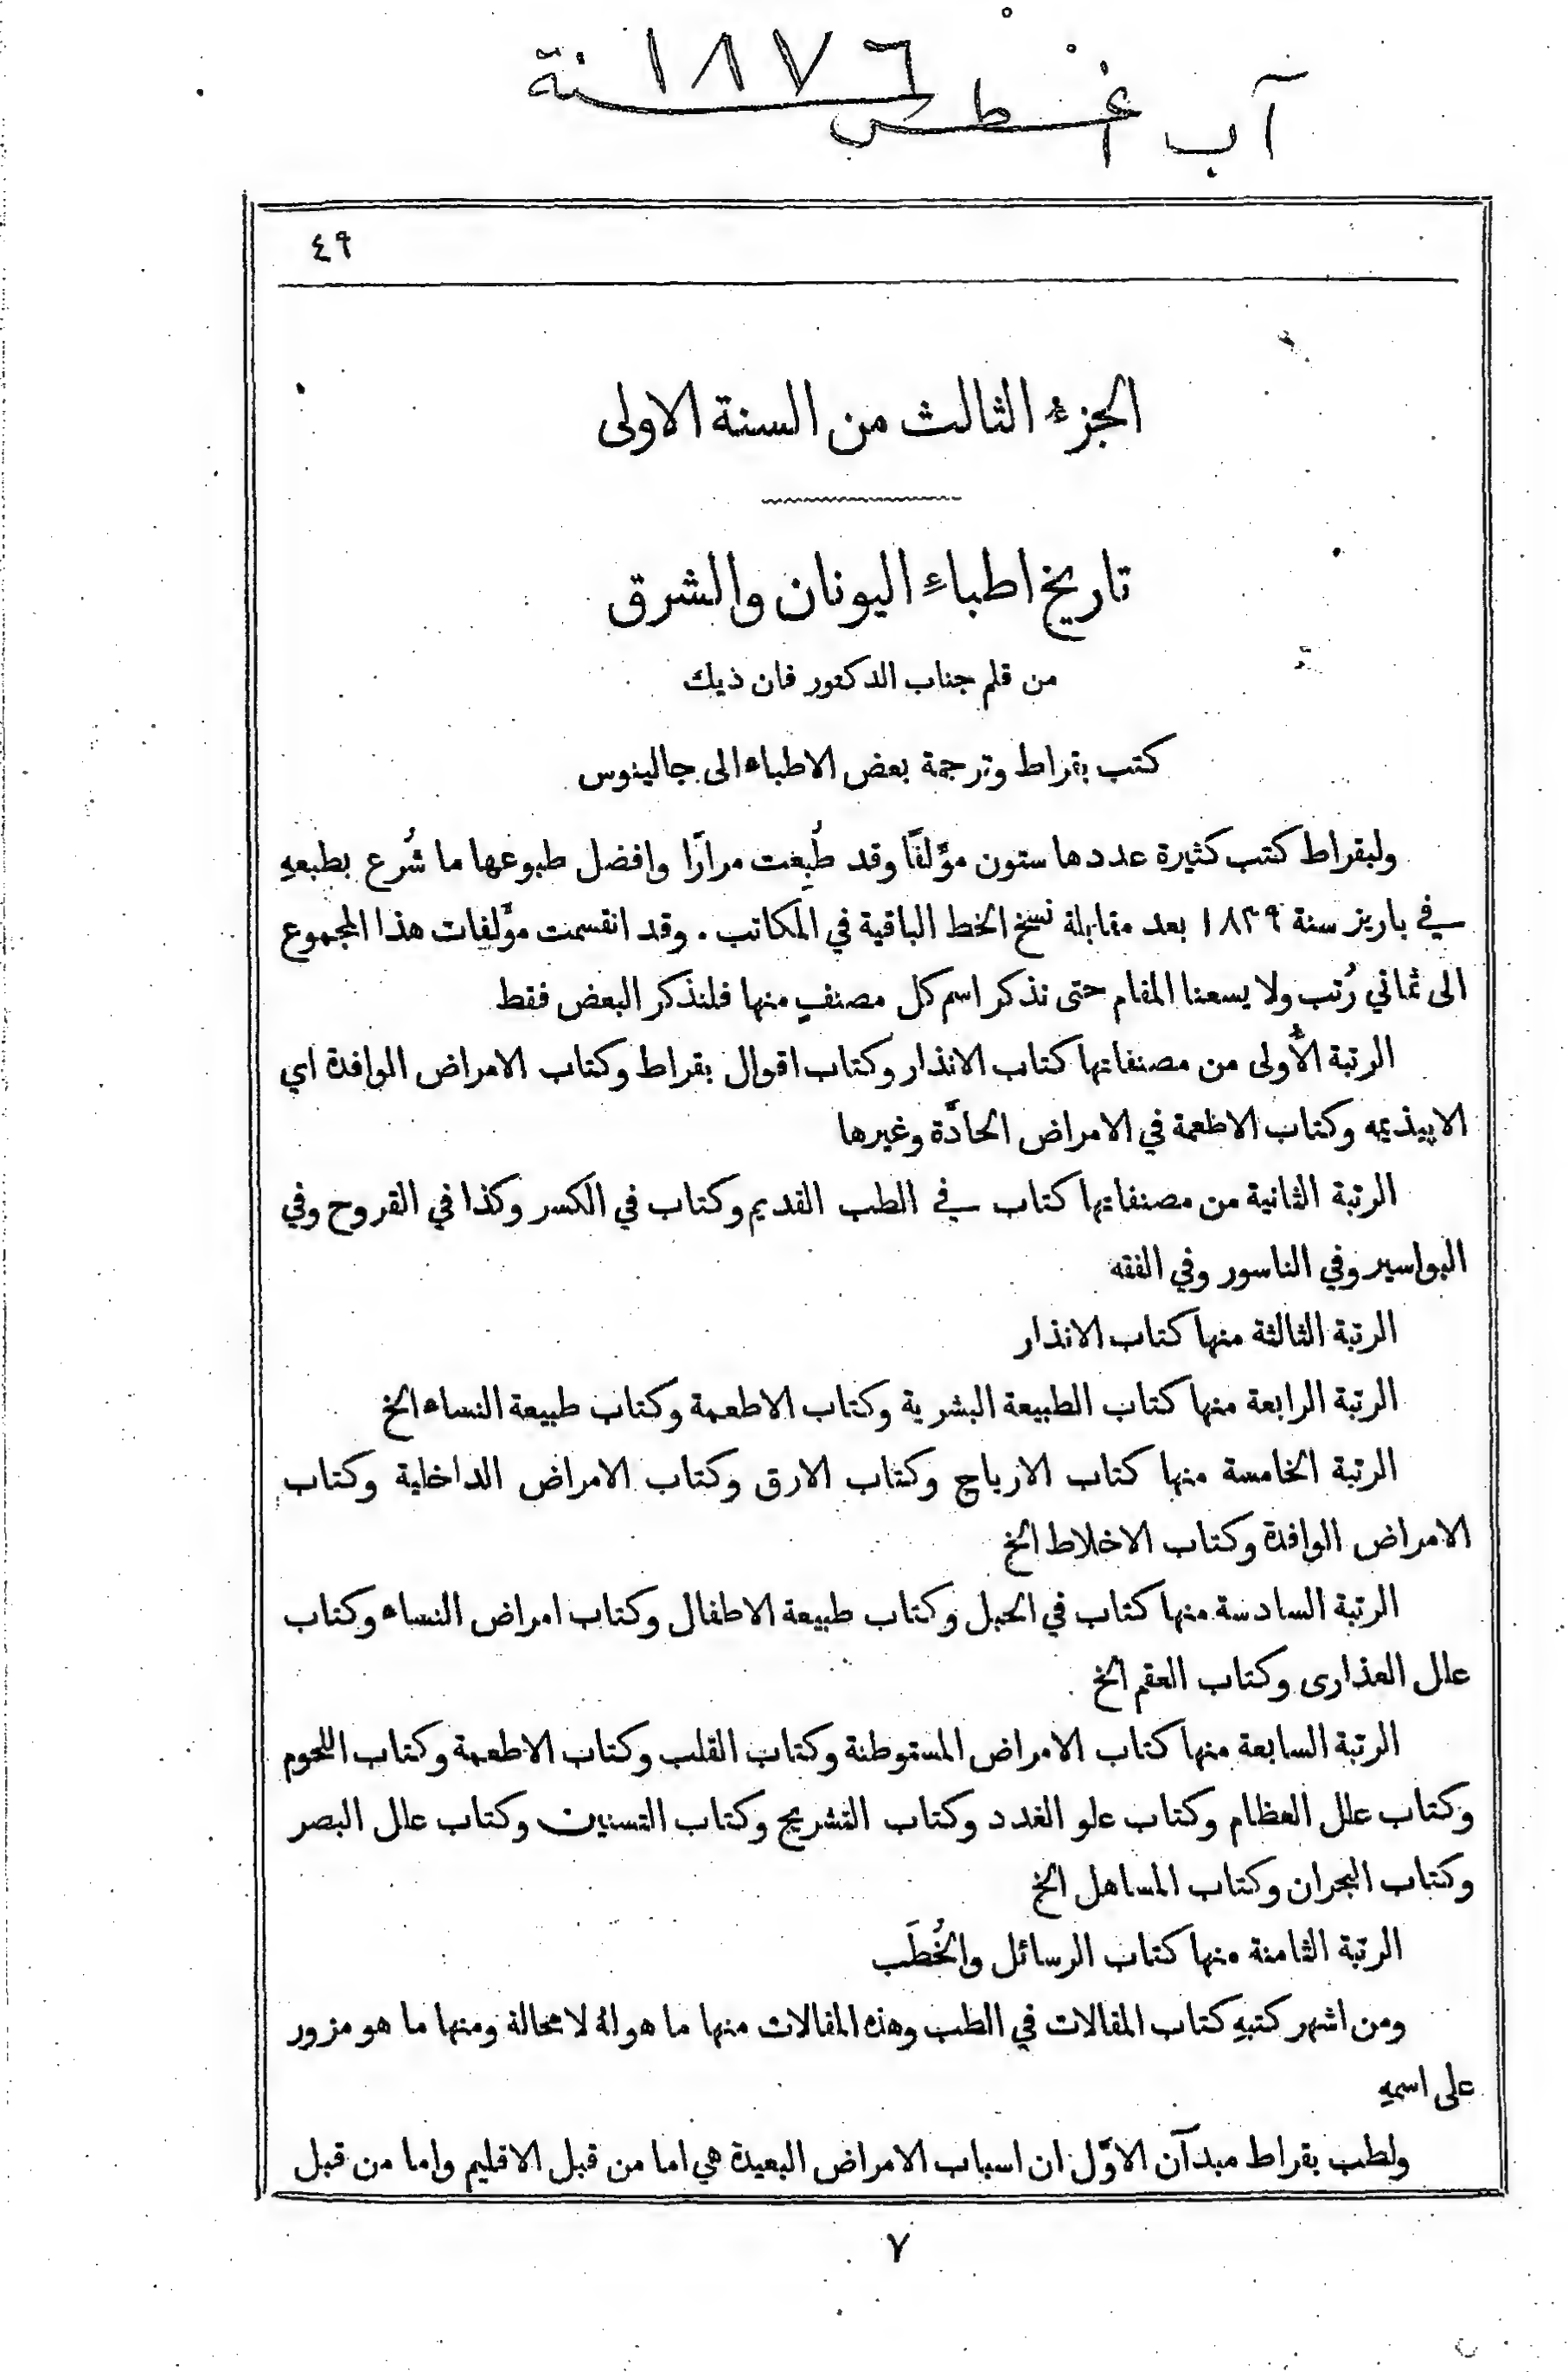 آب اغسطس سنة ١٨٧٦
٤٩
الجزء الثالث من السنة الاولى
تاريخ اطباء اليونان والشرق
من قلم جناب الدكتور فان ذيك
كتب بقراط وترجمة بعض الاطباء الى جالينوس
ولبقراط كتب كثيرة عددها ستون مؤَلفًا وقد طُبِعت مرارًا وافضل طبوعها ما شُرع بطبعهِ
في باريز سنة ١٨٣٩ بعد مقابلة نسخ الخط الباقية في المكاتب. وقد انقسمت مؤَلفات هذا المجموع
الى ثماني رُتب ولا يسعنا المقام حتى نذكر اسم كل مصنفٍ منها فلنذكر البعض فقط
الرتبة الأُولى من مصنفاتها كتاب الانذار وكتاب اقوال بقراط وكتاب الامراض الوافدة اي
الابيذيميه وكتاب الاطعمة في الامراض الحادَّة وغيرها
الرتبة الثانية من مصنفاتها كتاب في الطب القديم وكتاب في الكسر وكذا في القروح وفي
البواسير وفي الناسور وفي الفقه
الرتبة الثالثة منها كتاب الانذار
الرتبة الرابعة منها كتاب الطبيعة البشرية وكتاب الاطعمة وكتاب طبيعة النساء الخ
الرتبة الخامسة منها كتاب الارياح وكتاب الارق وكتاب الامراض الداخلية وكتاب
الامراض الوافدة وكتاب الاخلاط الخ
الرتبة السادسة منها كتاب في الحبل وكتاب طبيعة الاطفال وكتاب امراض النساء وكتاب
علل العذارى وكتاب العقم الخ
الرتبة السابعة منها كتاب الامراض المستوطنة وكتاب القلب وكتاب الاطعمة وكتاب اللحوم
وكتاب علل العظام وكتاب علو الغدد وكتاب التشريح وكتاب التسنين وكتاب علل البصر
وكتاب البحران وكتاب المساهل الخ
الرتبة الثامنة منها كتاب الرسائل والخُطَب
ومن اشهر كتبهِ كتاب المقالات في الطب وهذه المقالات منها ما هو لهُ لا محالة ومنها ما هو مزور
على اسمهِ
ولطب بقراط مبدآن الاوَّل ان اسباب الامراض البعيدة هي اما من قبل الاقليم واما من قبل
٧